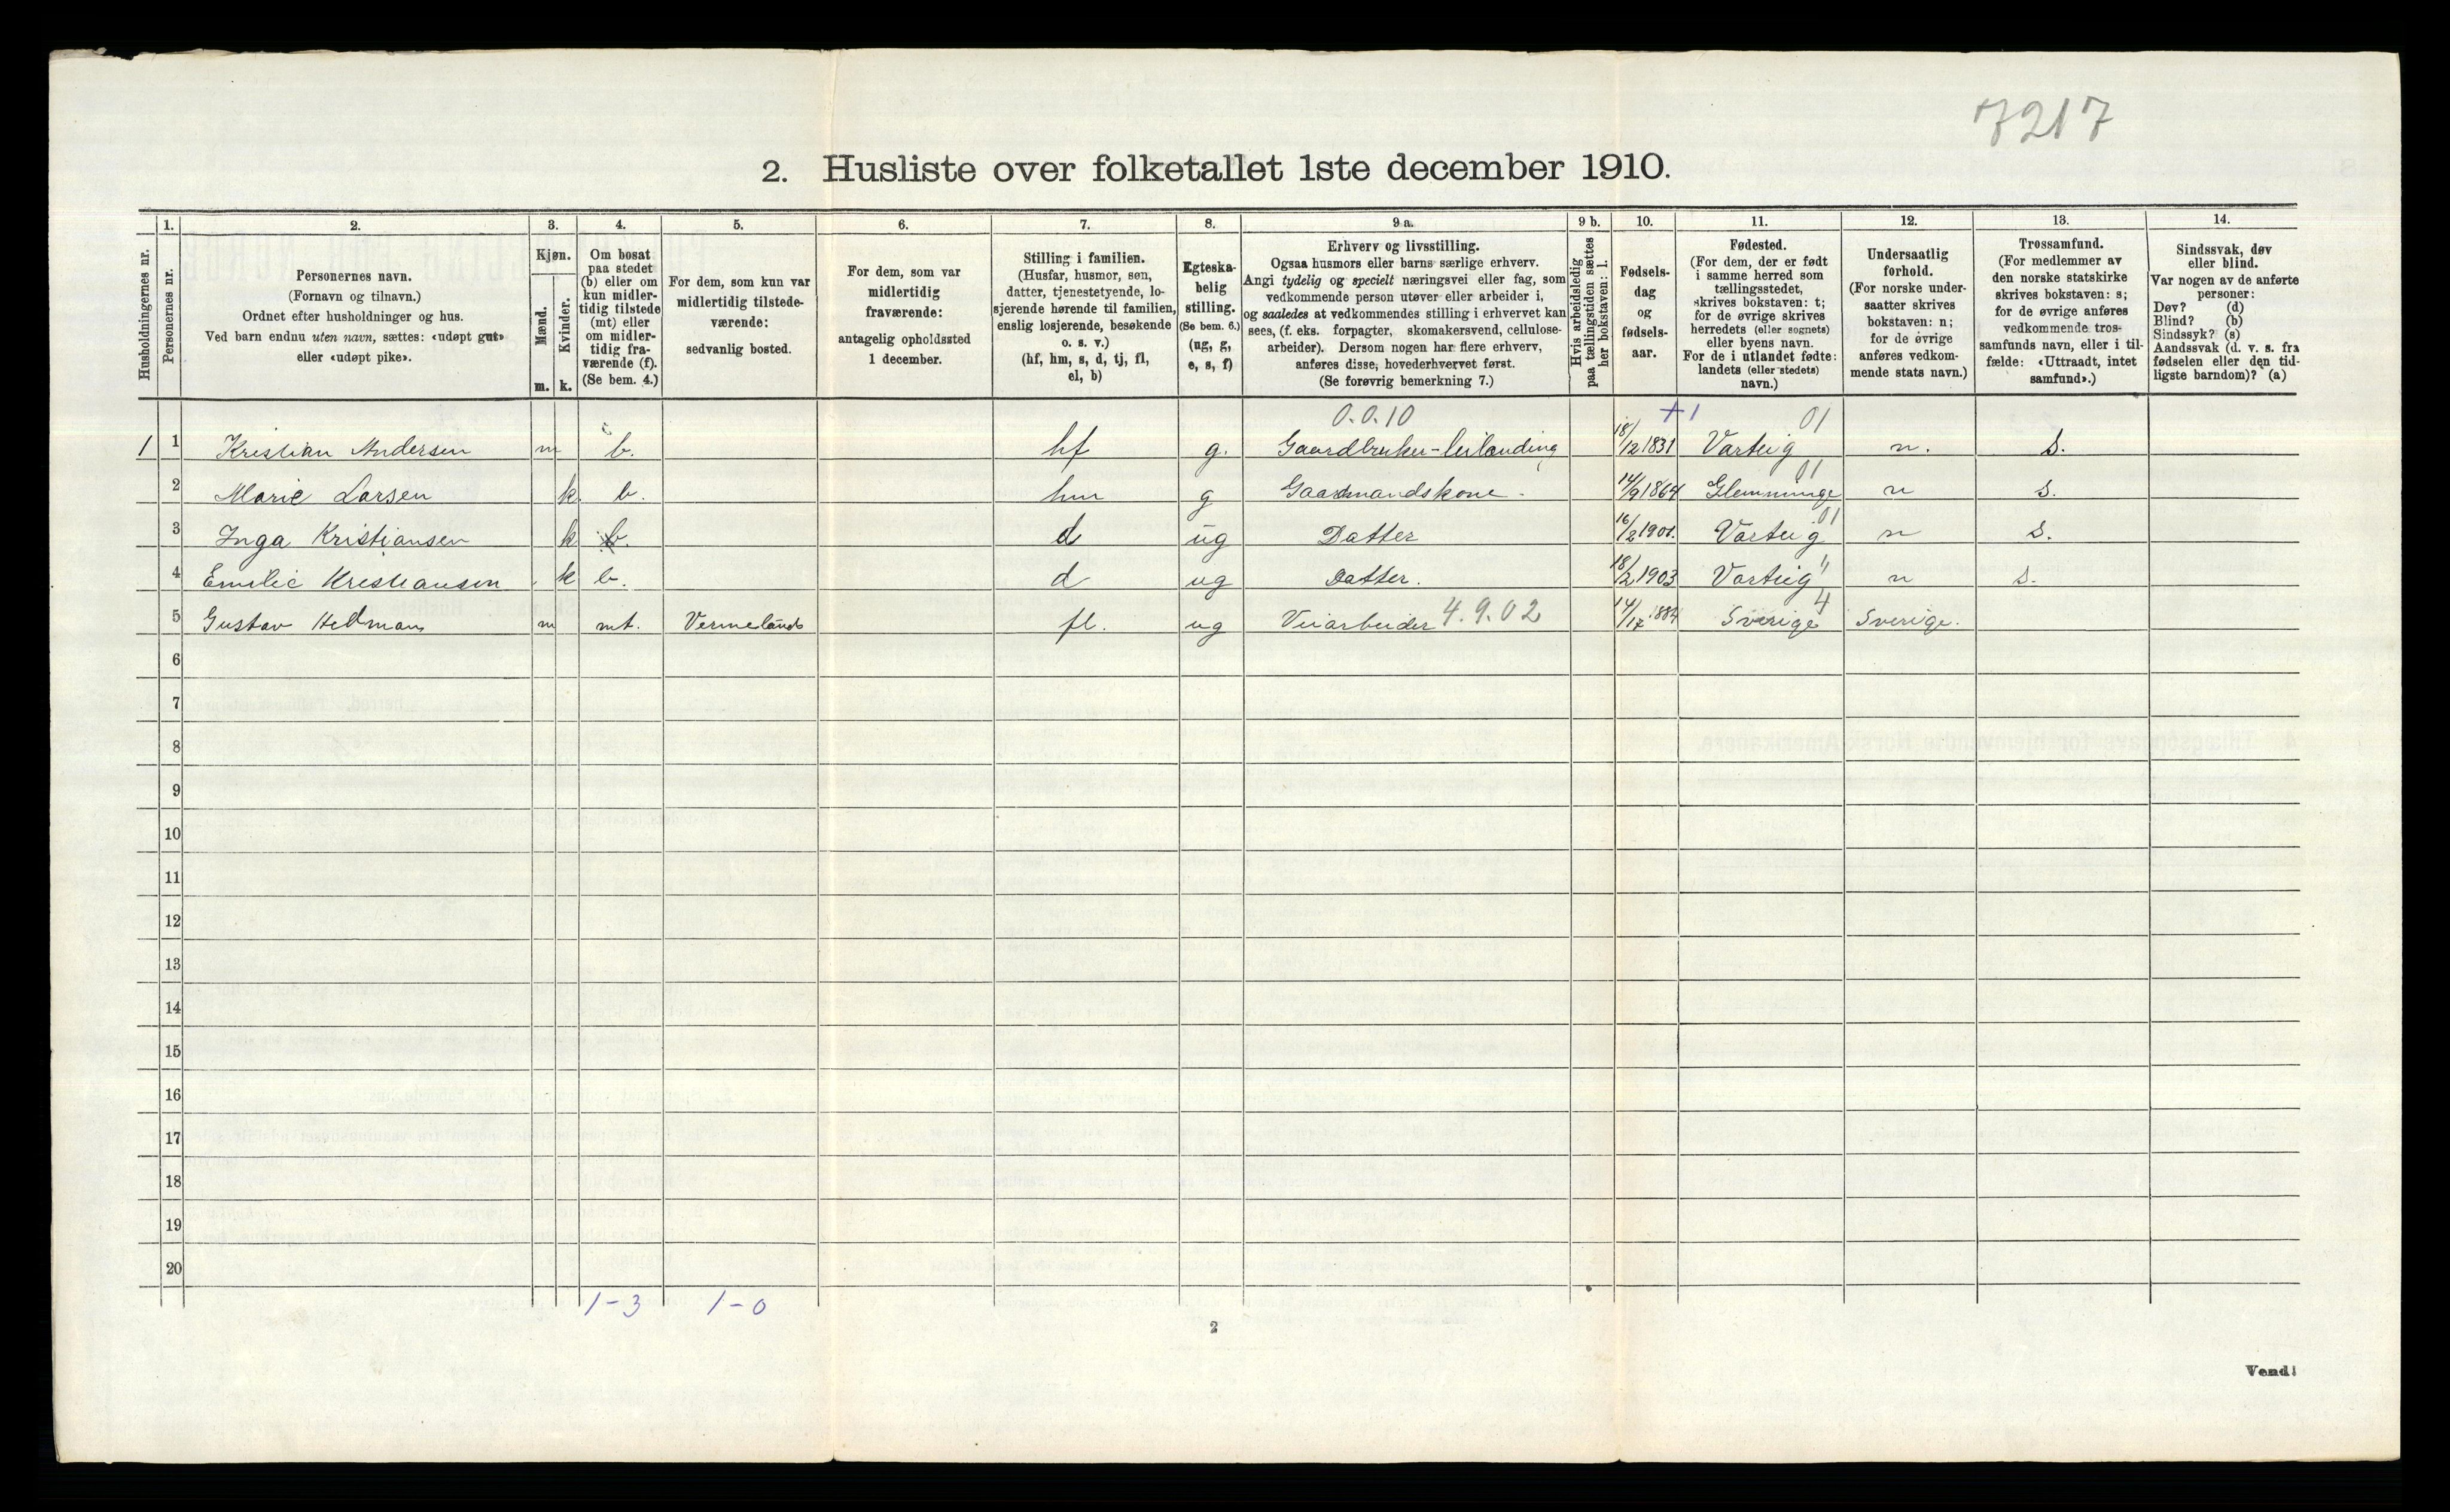 7217
2. Husliste over folketallet 1ste december 1910.
Husholdningernes nr.
1.
Personernes nr.
2.
Personernes navn.
(Fornavn og tilnavn.)
Ordnet efter husholdninger og hus.
Ved barn endnu uten navn, sættes: «udøpt gut»
eller «udøpt pike».
3.
Kjøn.
Mænd.
Kvinder.
m. k.
4.
Om bosat
paa stedet
(b) eller om
kun midler-
tidig tilstede
(mt) eller
om midler-
tidig fra-
værende (f).
(Se bem. 4.)
5.
For dem, som kun var
midlertidig tilstede-
værende:
sedvanlig bosted.
6.
For dem, som var
midlertidig
fraværende:
antagelig opholdssted
1 december.
7.
Stilling i familien.
(Husfar, husmor, søn,
datter, tjenestetyende, lo-
sjerende hørende til familien,
enslig losjerende, besøkende
o. s. v.)
(hf, hm, s, d, tj, fl,
el, b)
8.
Egteska-
belig
stilling.
(Se bem. 6.)
(ug, g,
e, s, f)
9 a.
Erhverv og livsstilling.
Ogsaa husmors eller barns særlige erhverv.
Angi tydelig og specielt næringsvei eller fag, som
vedkommende person utøver eller arbeider i,
og saaledes at vedkommendes stilling i erhvervet kan
sees, (f. eks. forpagter, skomakersvend, cellulose-
arbeider). Dersom nogen har flere erhverv,
anføres disse, hovederhvervet først.
(Se forøvrig bemerkning 7.)
9 b.
Hvis arbeidsledig
paa tællingstiden sættes
her bokstaven: l.
10.
Fødsels-
dag
og
fødsels-
aar.
11.
Fødested.
(For dem, der er født
i samme herred som
tællingsstedet,
skrives bokstaven: t;
for de øvrige skrives
herredets (eller sognets)
eller byens navn.
For de i utlandet fødte:
landets (eller stedets)
navn.)
12.
Undersaatlig
forhold.
(For norske under-
saatter skrives
bokstaven: n;
for de øvrige
anføres vedkom-
mende stats navn.)
13.
Trossamfund.
(For medlemmer av
den norske statskirke
skrives bokstaven: s;
for de øvrige anføres
vedkommende tros-
samfunds navn, eller i til-
fælde: «Uttraadt, intet
samfund».)
14.
Sindssvak, døv
eller blind.
Var nogen av de anførte
personer:
Døv? (d)
Blind? (b)
Sindssyk? (s)
Aandssvak (d. v. s. fra
fødselen eller den tid-
ligste barndom)? (a)
0.0.10 +1 01
1 1 Kristian Andersen m b. hf g. Gaardbruker-leilænding 18/12 1831 Varteig n. s.
01
2 Marie Larsen k b. hm g Gaardmandskone. 14/9 1864 Glemminge n s.
01
3 Inga Kristiansen k b. d ug Datter 16/2 1901. Varteig n s.
"
4 Emilie Kristiansen k b. d ug Datter. 18/2 1903 Varteig n s.
4
5 Gustav Hedman m mt. Vermeland fl. ug Veiarbeider 4.9.02 1884 Sverige Sverige.
6
7
8
9
10
11
12
13
14
15
16
17
18
19
20
1-3 1-0
2
Vend!